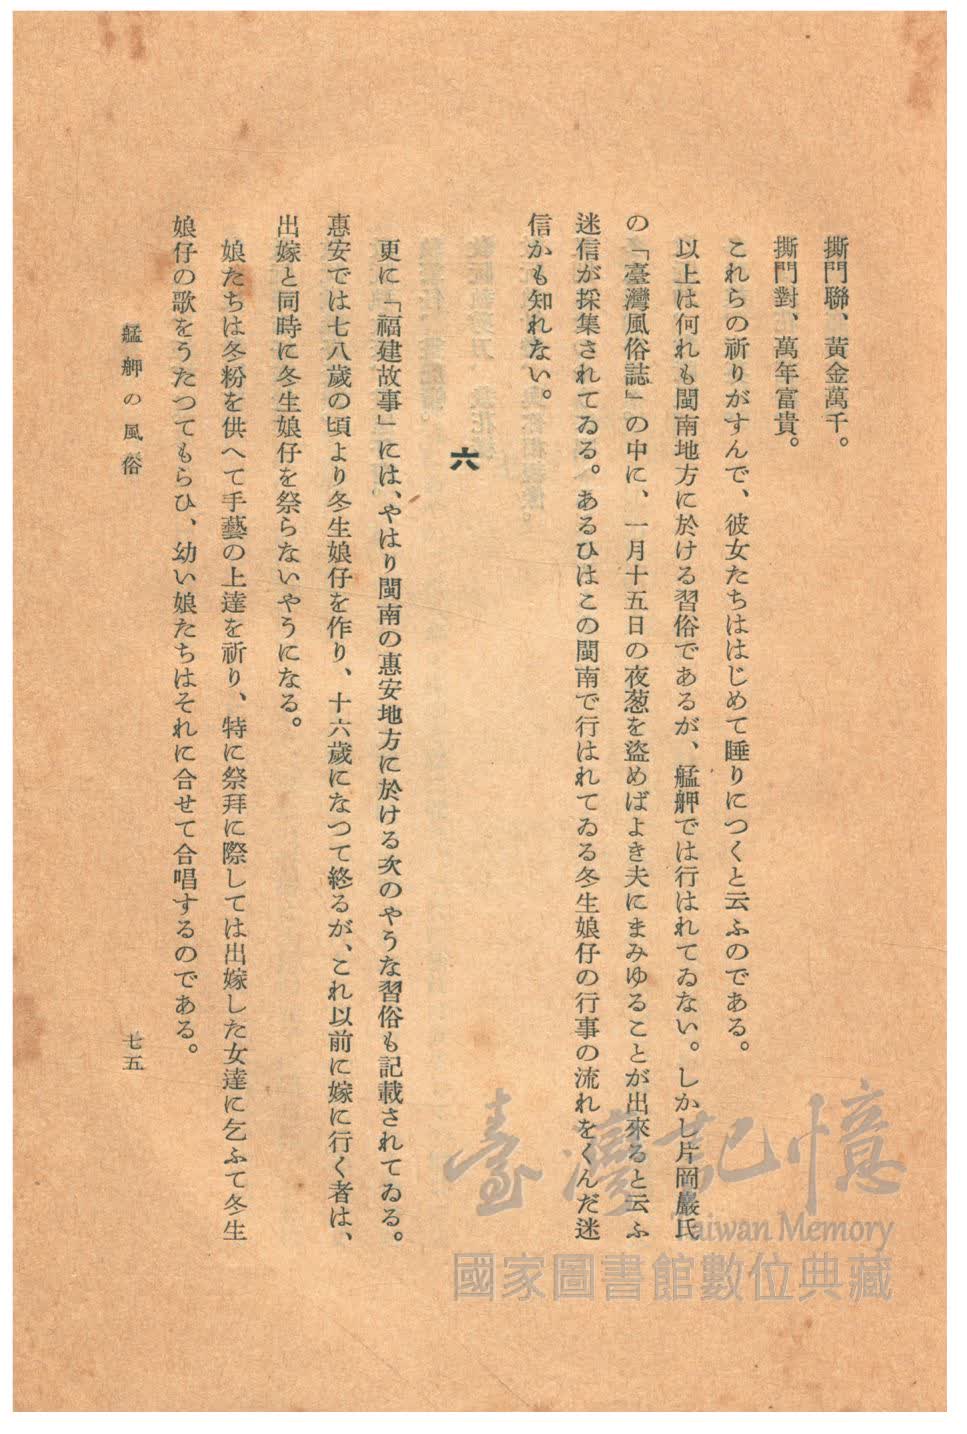 撕門聯、黃金萬千。
撕門對、萬年富貴。
これらの祈りがすんで、彼女たちははじめて睡りにつくと云ふのである。
以上は何れも閩南地方に於ける習俗であるが、艋舺では行はれてゐない。しかし片岡巖氏
の「臺灣風俗誌」の中に、一月十五日の夜葱を盜めばよき夫にまみゆることが出來ると云ふ
迷信が採集されてゐる。あるひはこの閩南で行はれてゐる冬生娘仔の行事の流れをくんだ迷
信かも知れない。
六
更に「福建故事」には、やはり閩南の惠安地方に於ける次のやうな習俗も記載されてゐる。
惠安では七八歲の頃より冬生娘仔を作り、十六歲になつて終るが、これ以前に嫁に行く者は、
出嫁と同時に冬生娘仔を祭らないやうになる。
娘たちは冬粉を供へて手藝の上達を祈り、特に祭拜に際しては出嫁した女達に乞ふて冬生
娘仔の歌をうたつてもらひ、幼い娘たちはそれに合せて合唱するのである。
艋舺の風俗
七五
臺灣記憶
Taiwan Memory
國家圖書館數位典藏